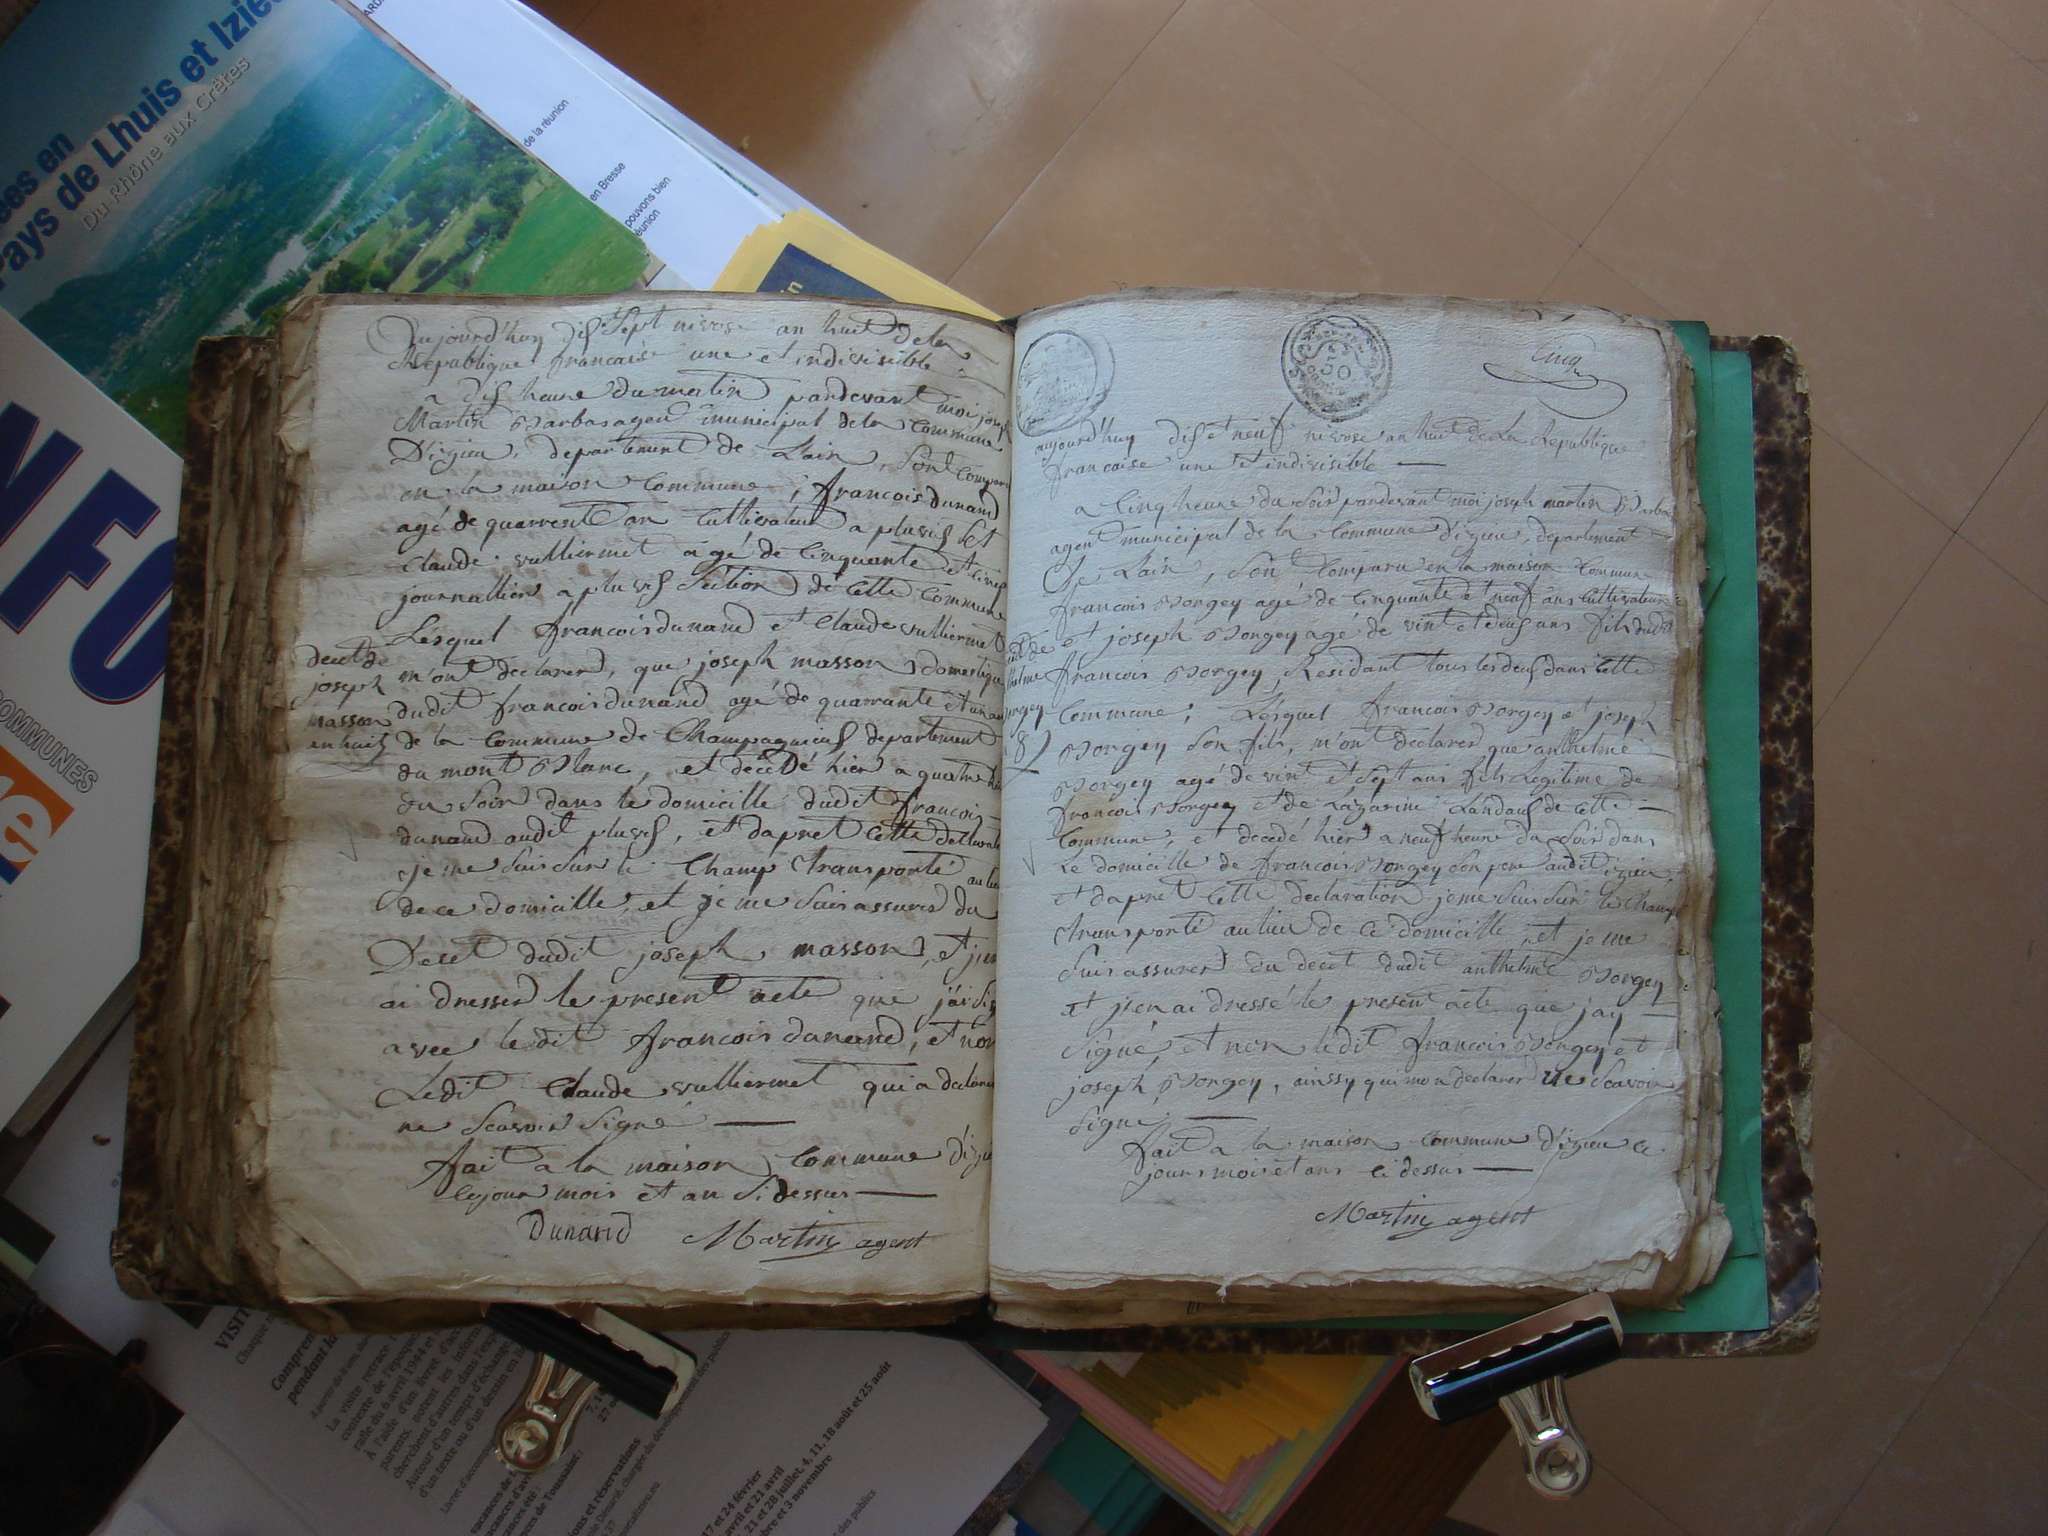 Pays de Lhuis et Izieu
Du Rhône aux Crêtes
de la réunion
en Bresse
pouvons bien
réunion
NFO
COMMUNES
Aujourd'huy dis Sept nivose an huit de la
Republique francaise une et indivisible
a dis heure du matin pardevant moi joseph
Martin Barbas agent municipal de la Commune
D'izieu, departement de Lain, Sont Comparu
en la maison Commune, francois dunand
agé de quarrente an Cultivateur a pluvis Et
Claude vulliermet agé de Cinquante et
journallier a pluvis Section de Cette Commune
Lesquel francois dunand et Claude vulliermet
m'ont declarer, que joseph masson domestique
dudit francois dunand agé de quarrante et un an
de la Commune de Champagnieus departement
du mont Blanc, et decedé hier a quatre
du Soir dans le domicille dudit francois
dunand audit pluvis, et dapret Cette
je me Suis Sur le Champ transporté au lieu
de ce domicille, et je me Suis assurer du
Decet dudit joseph masson, et j'en
ai dresser le present acte que j'ai
avec le dit francois dunand, et non
Ledit Claude vulliermet qui a declarer
ne Scavoir Signé
fait a la maison Commune d'izieu
le jour mois et an Si dessus
Dunand Martin agent
decet de
joseph
masson
en huit
Cinq
aujourd'huy dis et neuf nivose an huit de La Republique
francaise une et indivisible
a Cinq heure du Soir pardevant moi joseph martin Barbas
agent municipal de la Commune d'izieu, departement
de Lain, Son Comparu en la maison Commune
francois Borgey agé de Cinquante et neuf ans Cultivateur
et joseph Borgey agé de vint et deus ans fils dudit
francois Borgey, Residant tous les deus dans Cette
Commune, Lesquel francois Borgey et joseph
Borgey Son fils, m'ont declarer que anthelme
Borgey agé de vint et Sept ans fils Legitime de
francois Borgey et de Lazarine Landaus de Cette
Commune, e decedé hier a neuf heure du Soir dans
Le domicille de francois Borgey Son pere audit izieu,
et dapret Cette declaration je me Suis Sur le Champ
transporté au lieu de Ce domicille, et je me
Suis assurer du decet dudit anthelme Borgey
et j'en ai dressé le present acte que jay
Signé, et non ledit francois Borgey et
joseph Borgey, ainssy qui mon declarer ne Scavoir
Signé
fait a la maison Commune d'izieu ce
jours mois et ans Ci dessus
Martin agent
VISIT
La visite retrace
17 et 24 février
avril et 21 avril
21 et 28 juillet, 4, 11, 18 août et 25 août
et 3 novembre